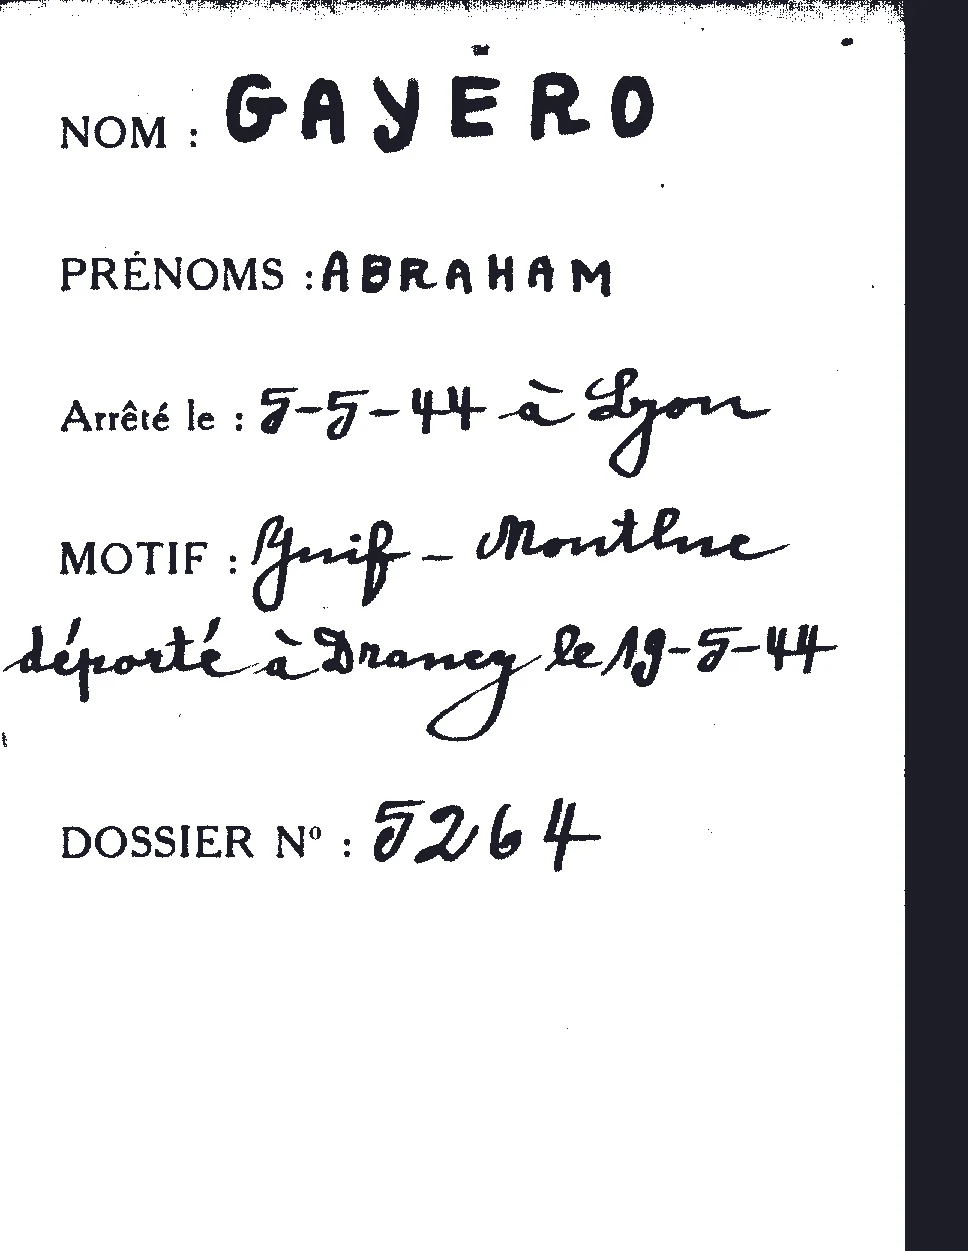 NOM : GAYĒRO
PRÉNOMS : ABRAHAM
Arrêté le : 5-5-44 à Lyon
MOTIF : Juif - Montluc
déporté à Drancy le 19-5-44
DOSSIER Nº : 5264